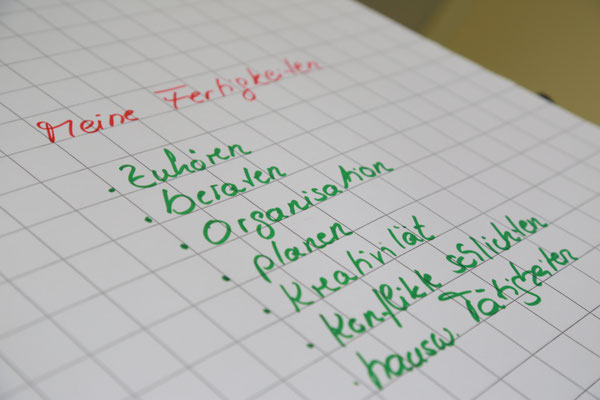 Meine Fertigkeiten
· Zuhören
· beraten
· Organisation
· planen
· Kreativität
· Konflikte schlichten
· hausw. Tätigkeiten